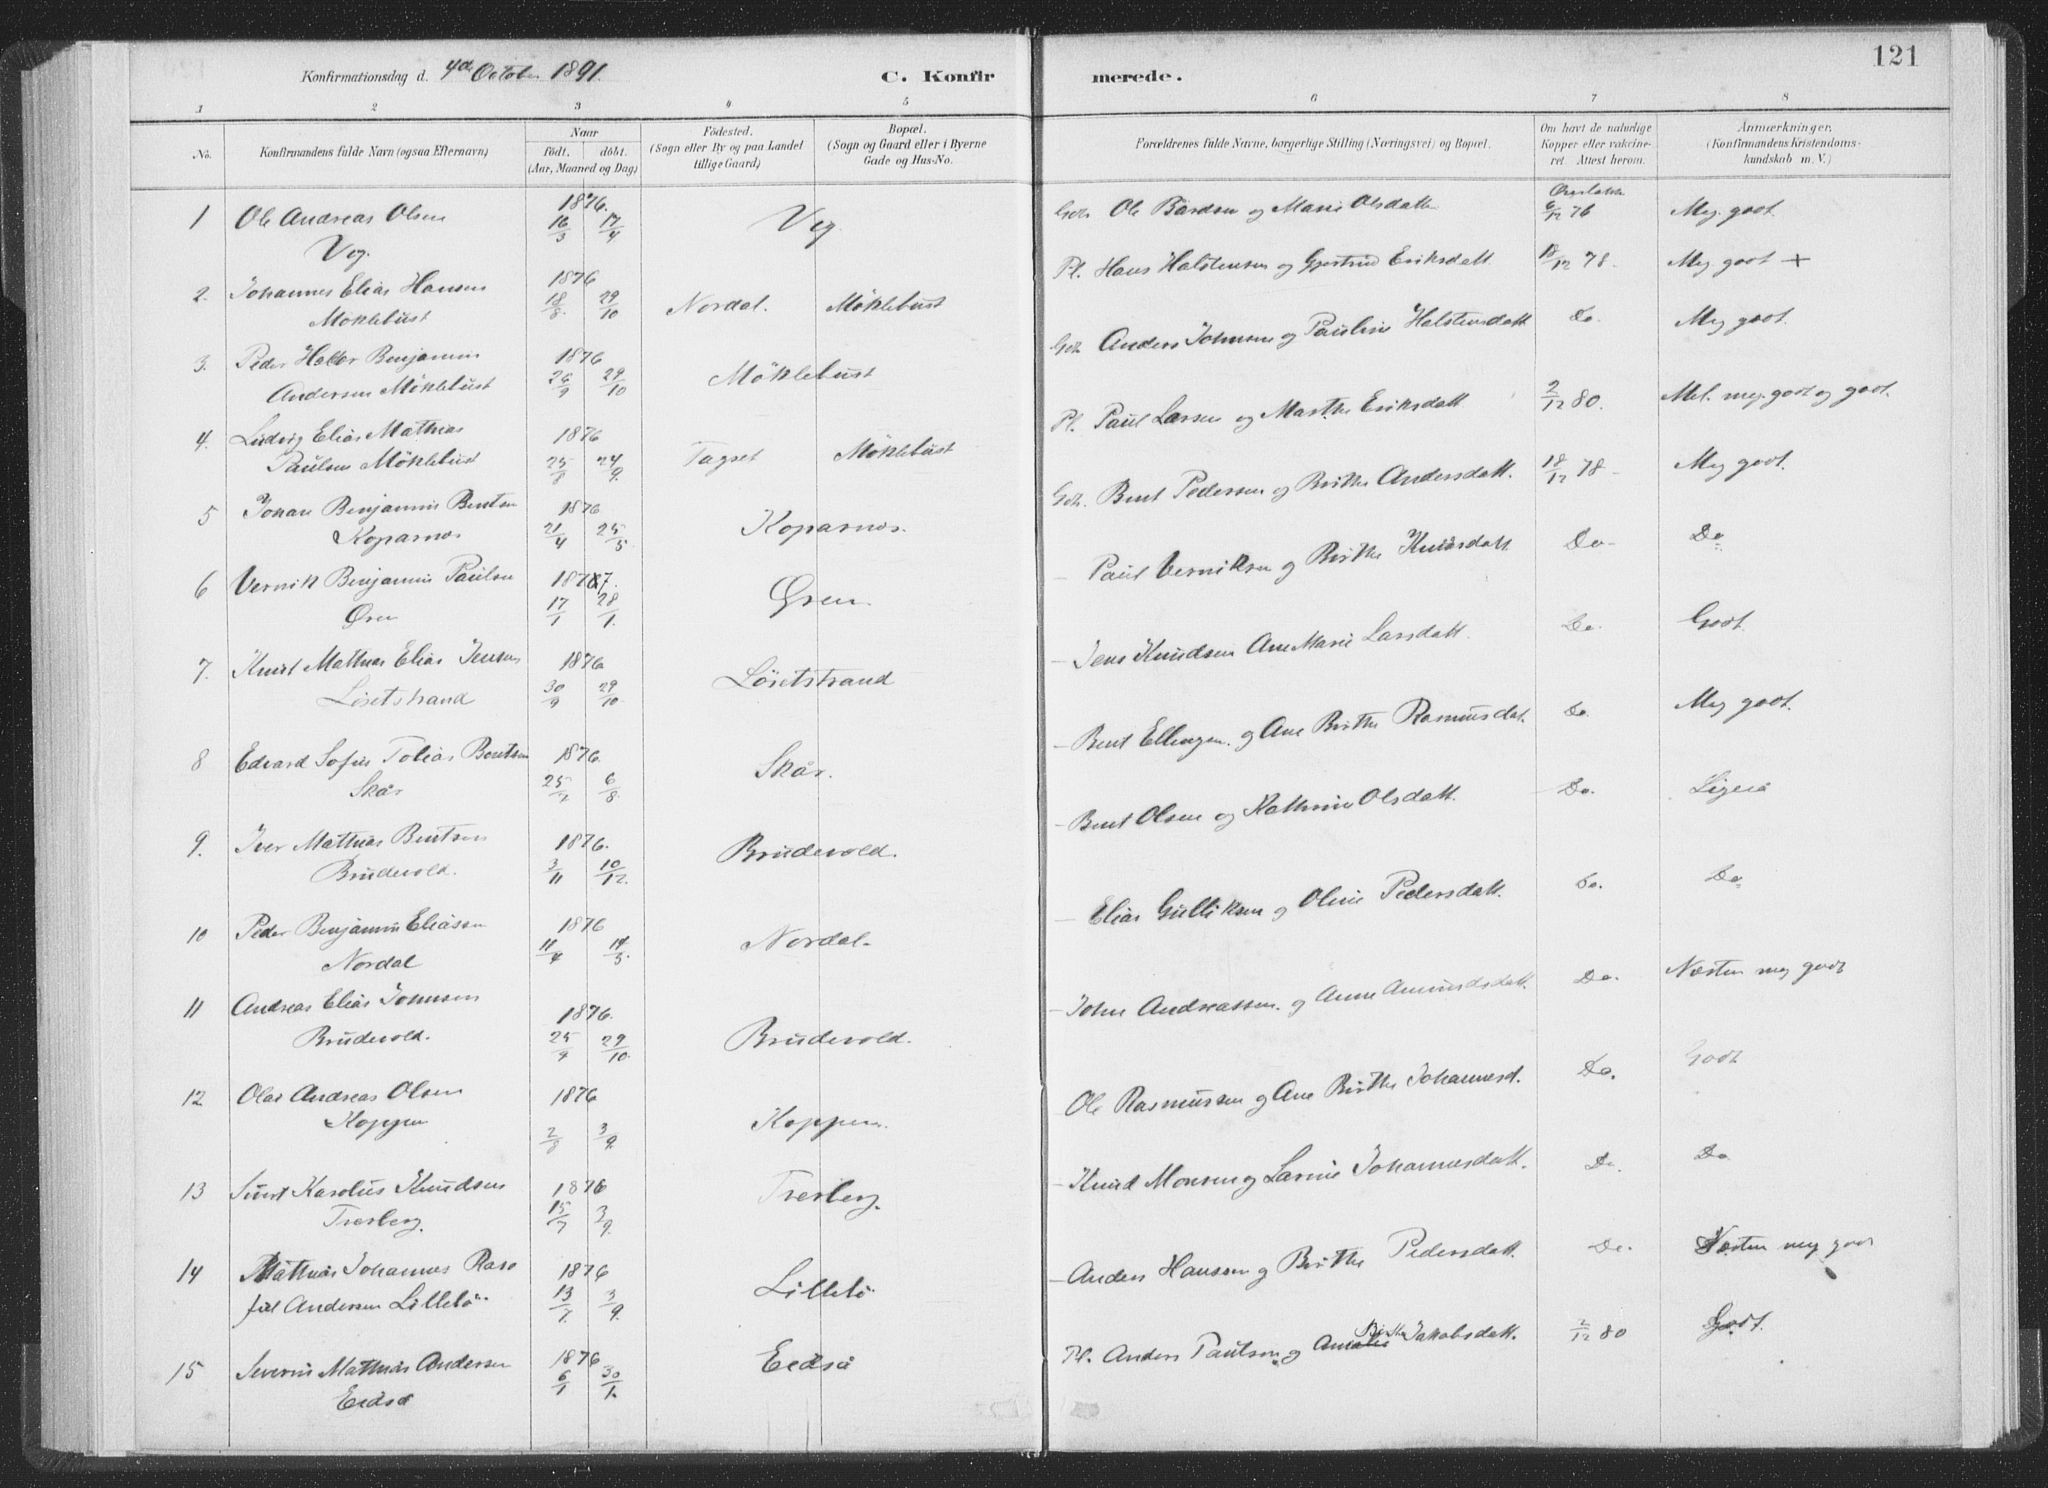 Konfirmationsdag d. 4de October 1891.
C. Konfirmerede.
121
1 2 3 4 5 6 7 8
No.
Konfirmandens fulde Navn (ogsaa Efternavn)
Naar
födt. döbt.
(Aar, Maaned og Dag)
Födested.
(Sogn eller By og paa Landet
tillige Gaard)
Bopæl.
(Sogn og Gaard eller i Byerne
Gade og Hus-No.
Forældrenes fulde Navne, borgerlige Stilling (Næringsvei) og Bopæl.
Om havt de naturlige
Kopper eller vakcine-
ret. Attest herom.
Anmærkninger.
(Konfirmandens Kristendoms-
kundskab m. V.)
1 Ole Andreas Olsen 1876. Ole Bårdsen og Marie Olsdatter 6/12 76 Meg. godt.
Veg. 16/3 17/4 Veg.
2. Johannes Elias Hansen 1876 Pl. Hans Halstensen og Gjertrud Eriksdatt 18/12 78. Meg godt +
Möklebust 18/8. 29/10 Nordal. Möklebust
3. Peder Benjamin 1876 Anders Johnsen og Pauline Halstensdatt Do. Meg godt.
Andersen Möklebust 26/9 29/10 Möklebust
4. Ludvig Elias Mathias 1876 Pl. Paul Larsen og Marthe Eriksdatt 2/12 80. Mel. meg. godt og godt.
Paulsen Möklebust 25/8 24/9. Tagset Möklebust
5 Johan Benjamin Bentsen 1876 Bent Pedersen og Birthe Andersdatt. 18/12 78 - Meg godt.
Koparnes 21/4 25/5. Koparnes.
6 Vernik Benjamin Paulsen 1877. - Paul Verniksen og Birthe Knudsdatt Do- Do
Øren 17/1 28/1. Øren.
7. Knut Mathias Elias Jensen 1876 - Jens Knudsen Ane Marie Larsdatt. Do. Godt
Löset strand 30/9 29/10 Lösetstrand
8 Edvard Sofus Tobias Bentsen 1876. - Bent Ellingsen. og Ane Birthe Rasmusdat. Do. Meg godt.
Skår 25/7 6/8. Skår.
9. Iver Mathias Bentsen 1876. - Bent Olsen og Kathrine Olsdatt. Do. Ligeså
Brudevold. 3/11 10/12. Brudevold.
10 Peder Benjamin Eliasen 1876 - Elias Gulliksen og Oline Pedersdatt. Do. Do
Nordal 11/4 14/5. Nordal.
11 Andreas Elias Johnsen 1876. - John Andreassen. og Anne Amundsdatt. Do. Næsten meg godt
Brudevold. 25/9 29/10. Brudevold.
12 Olai Andreas Olsen 1876 Ole Rasmussen og Ane Birthe Johannesd. Do. Godt
Koppen 2/8 3/9. Koppen.
13 Sivert Karolus Knudsen 1876 - Knud Monsen og Larine Johannesdatt. Do. Do
Tverberg. 15/7 3/9. Tverberg.
14 Mathias Johannes 1876 - Anders Hanssen og Birthe Pedersdatt. Do. Næsten meg godt
Andersen Lillebö 13/7. 3/9. Lillebö
15 Severin Mathias Andersen 1876 Pl. Anders Paulsen og Birthe Jakobsdatt. 2/12 80 Godt.
Eidså 6/1 30/1. Eidså